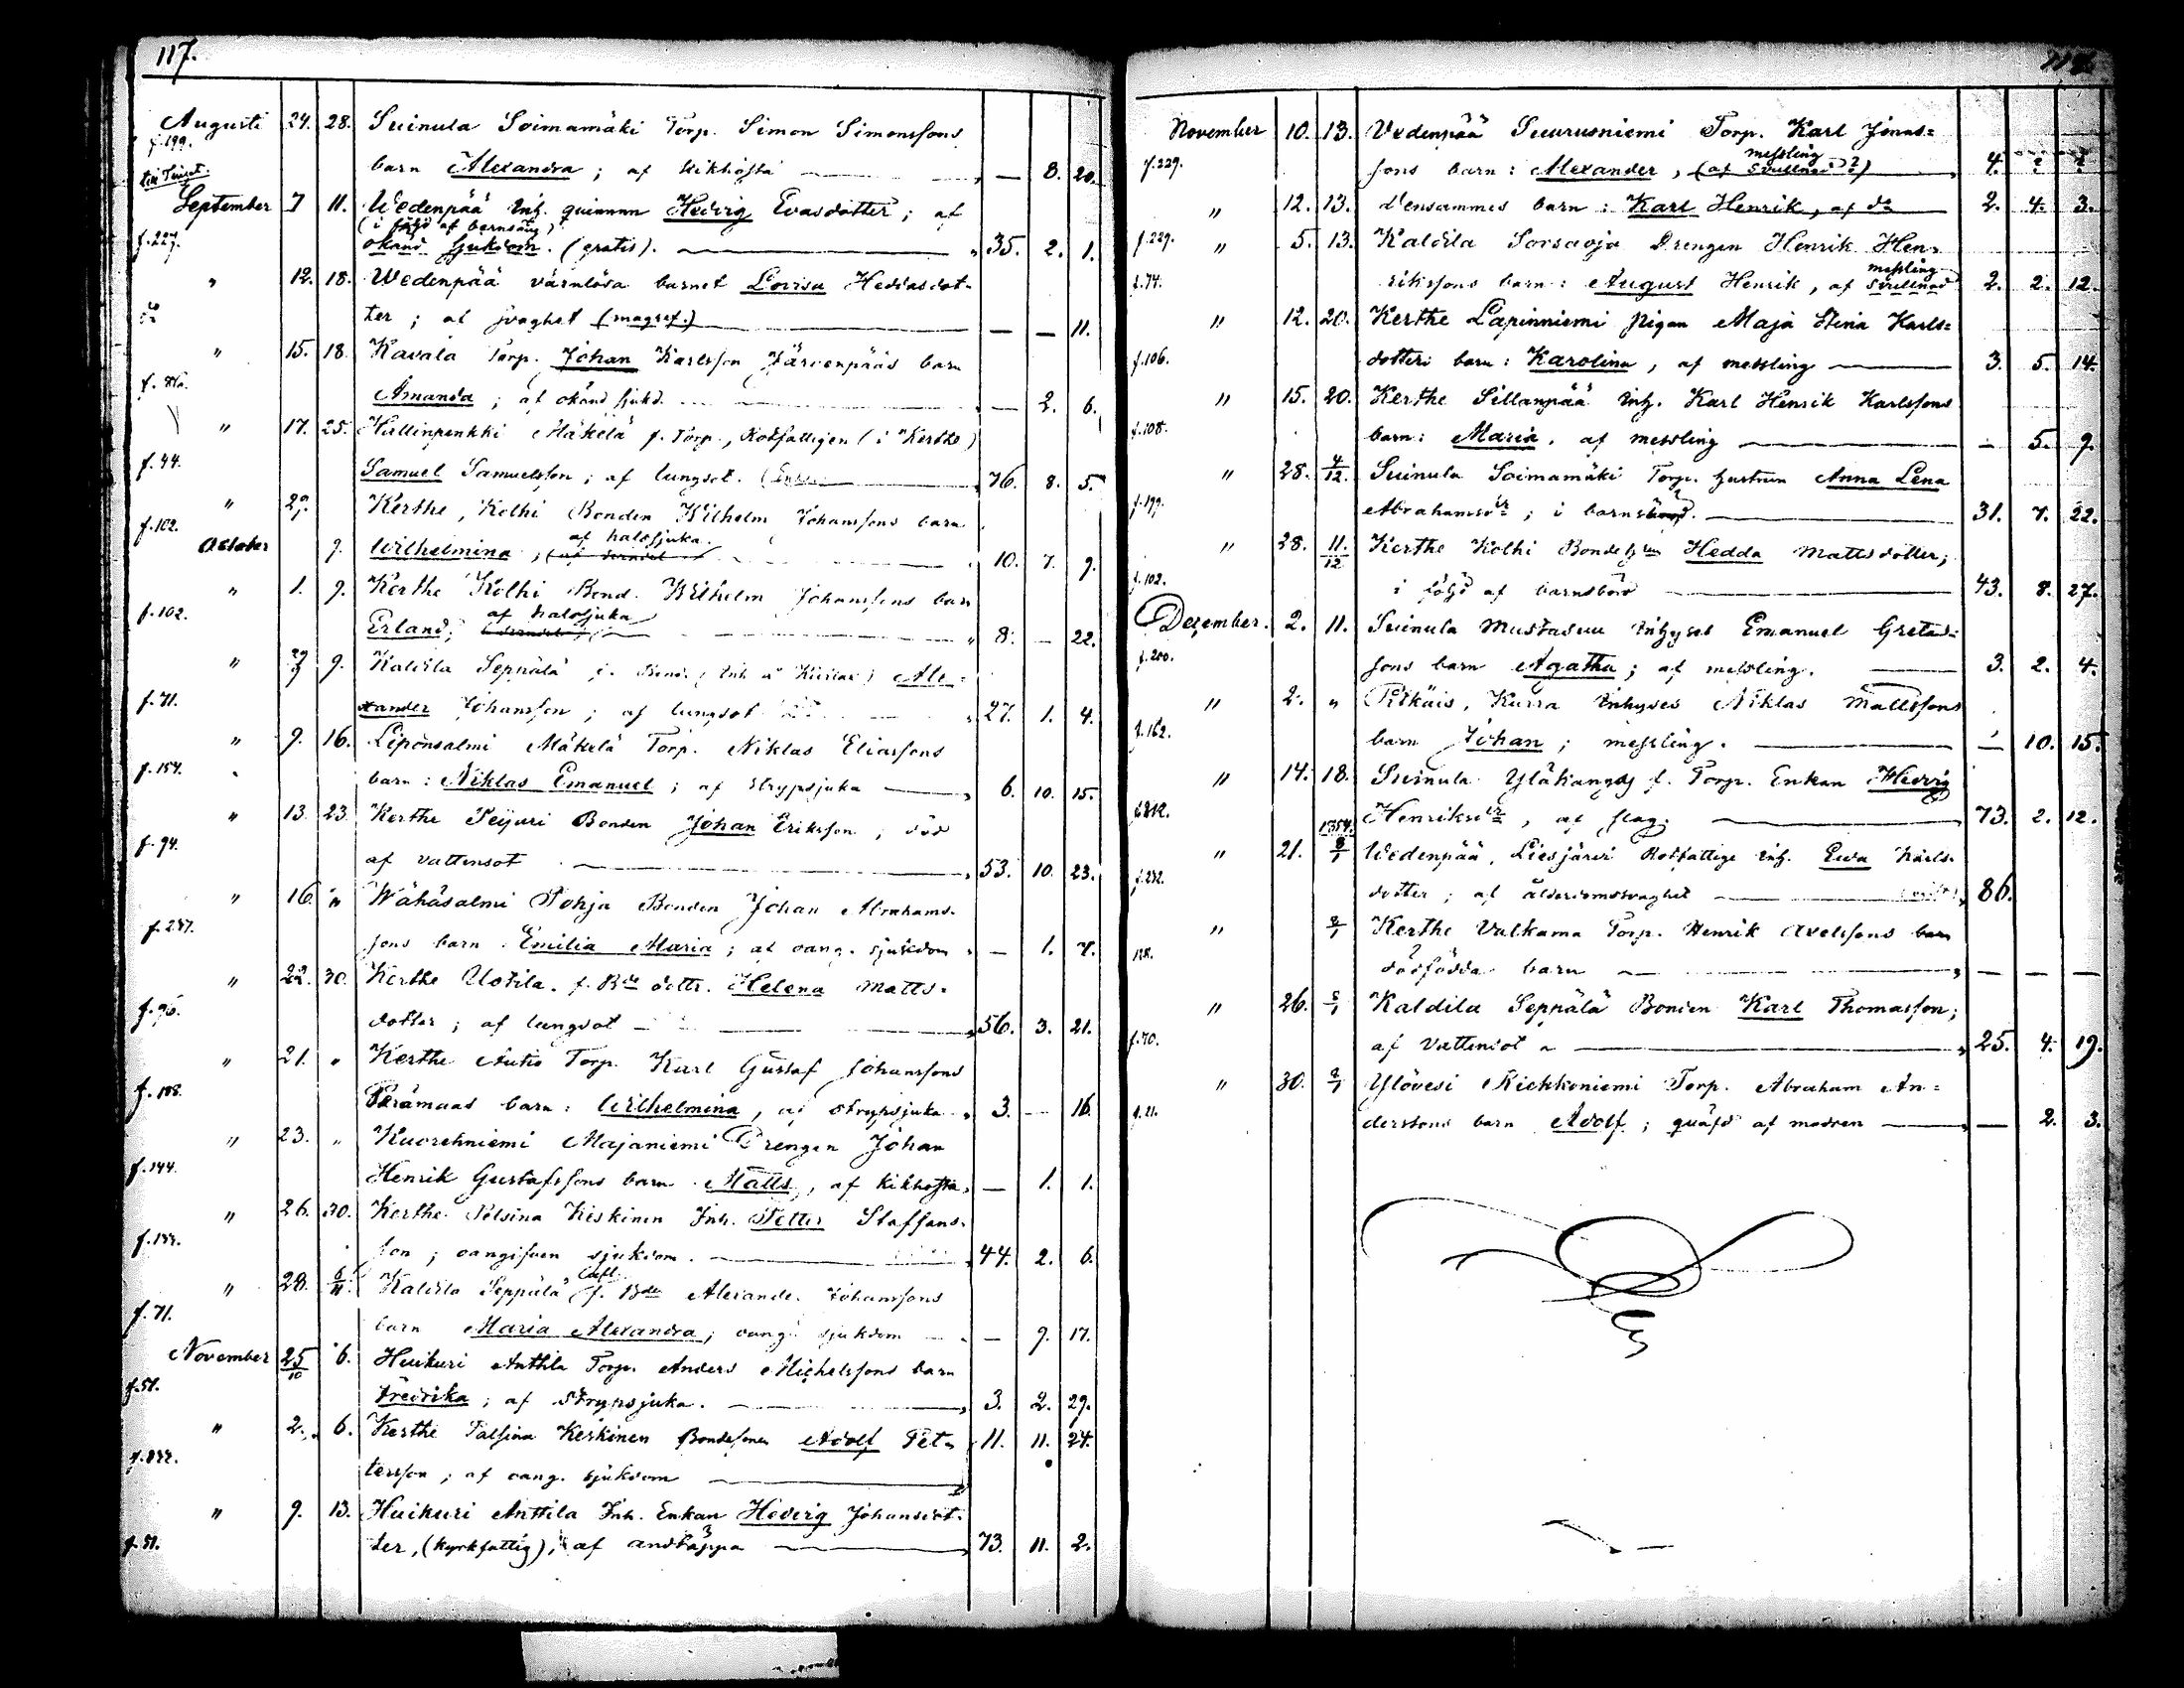 117.
Augusti 24. 28. Suinula Soimamäki Torp. Simon Simonssons
f.199.
barn Alexandra; af kikhosta — 8. 20.
September 7 11. Wedenpää Inh. quinnan Hedvig Evasdotter; af
(i följd af barnsäng)
f.227. okänd sjukdom. (gratis). 35. 2. 1.
" 12. 18. Wedenpää värnlösa barnet Lovisa Heddasdot-
do ter; af svaghet (magref.) — — 11.
" 15. 18. Kavala Torp. Johan Karlsson Järvenpääs barn
Amanda; af okänd sjukd. — 2. 6.
" 17. 25. Hallinpenkki Mäkelä f. Torp., Rotfattigen (i Kerthe)
f.44. Samuel Samuelsson; af lungsot. 76. 8. 5.
" 29. Kerthe, Kolhi Bonden Wilhelm Johanssons barn
f.102.
af halssjuka.
October 9. Wilhelmina, 10. 7. 9.
" 1. 9. Kerthe Kolhi Bond. Wilhelm Johanssons barn
af halssjuka
f.102. Erland; 8. — 22.
" 29/9 9. Kaldila Seppälä f. Bond. Ale-
f.71. xander Johansson; af lungsot 27. 1. 4.
" 9. 16. Liponsalmi Mäkelä Torp. Niklas Eliassons
f.154. barn: Niklas Emanuel; af strypsjuka 6. 10. 15.
" 13. 23. Kerthe Peijari Bonden Johan Eriksson; död
f.94. af vattensot 53. 10. 23.
" 16. " Wähäsalmi Pohja Bonden Johan Abrahams-
f.237. sons barn Emilia Maria; af oang. sjukdom — 1. 7.
" 22. 30. Kerthe Uotila. f. Bde dottr. Helena Matts-
f.96. dotter; af lungsot 56. 3. 21.
" 21. " Kerthe Autio Torp. Karl Gustaf Johanssons
f.108. Perämaas barn: Wilhelmina, af strypsjuka 3. — 16.
" 23. " Kuorehniemi Majaniemi Drengen Johan
f.144. Henrik Gustafssons barn Matts, af kikhosta — 1. 1.
" 26. 30. Kerthe Pelsina Keskinen Inh. Petter Staffans-
f.133. son; oangifven sjukdom. 44. 2. 6.
" 28. 6/11. Kaldila Seppälä f. Bde Alexander Johanssons
f.71. barn Maria Alexandra; oang. sjukdom — 9. 17.
November 25/10 6. Huikuri Anttila Torp. Anders Michelssons barn
f.51. Fredrika; af strypsjuka. 3. 2. 29.
" 2. 6. Kerthe Palsina Keskinen Bondesonen Adolf Pet- 11. 11. 24.
tersson; af oang. sjukdom
" 9. 13. Huikuri Anttila Inh. Enkan Hedvig Johansdot-
f.51. ter, (kyrkfattig), af andtäppa 73. 11. 2.
118.
November 10. 13. Vedenpää Suurusniemi Torp. Karl Jonas-
messling
f.229. sons barn: Alexander, (af svullnad) 4.
" 12. 13. densammes barn: Karl Henrik, af do 2. 4. 3.
f.229. " 5. 13. Kaldila Sorsaoja Drengen Henrik Hen-
messling
f.74. rikssons barn: August Henrik, af svullnad 2. 2. 12.
" 12. 20. Kerthe Lapinniemi Pigan Maja Stina Karls-
f.106. dotters barn: Karolina, af messling 3. 5. 14.
" 15. 20. Kerthe Sillanpää Inh. Karl Henrik Karlssons
f.108. barn: Maria, af messling — 5. 9.
" 28. 4/12. Suinula Soimamäki Torp. hustrun Anna Lena
f.199. Abrahamsdr; i barnsbörd. 31. 7. 22.
" 28. 11/12 Kerthe Kolhi Bondehun Hedda Mattsdotter;
f.102. i följd af barnsbörd 43. 8. 27.
December. 2. 11. Suinula Mustasuu Inhyses Emanuel Gretas-
f.200. sons barn Agatha; af messling. 3. 2. 4.
" 2. " Pitkäis, Kurra Inhyses Niklas Mattssons
f.162. barn Johan; messling. — 10. 15.
" 14. 18. Suinula Ylähanga f. Torp. Enkan Hedvig
Henriksdr, af slag. 73. 2. 12.
1854.
" 21. 8/1 Wedenpää, Liesjärvi Rotfattige Inh. Eva Karls-
f.232. dotter; af ålderdomsvaghet 86.
" 8/1 Kerthe Valkama Torp. Henrik Axelssons barn
dödfödda barn — — —
" 26. 8/1 Kaldila Seppälä Bonden Karl Thomasson;
f.70. af vattensot 25. 4. 19.
" 30. 8/1 Ylövesi Kiekkoniemi Torp. Abraham An-
f.21. derssons barn Adolf; qväfd af modren — 2. 3.